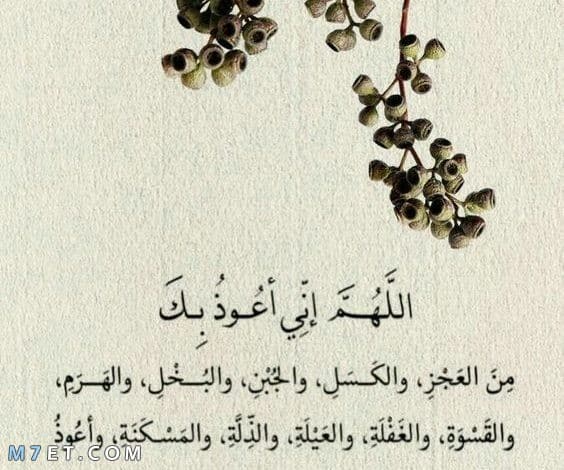 اللَّهُمَّ إنِّي أعُوذُ بِكَ
مِنَ العَجْزِ، والكَسَلِ، والجُبْنِ، والبُخْلِ، والهَرَمِ،
والقَسْوَةِ، والغَفْلَةِ، والعَيْلَةِ، والذِّلَّةِ، والمَسْكَنَةِ، وأعُوذُ
M7ET.COM